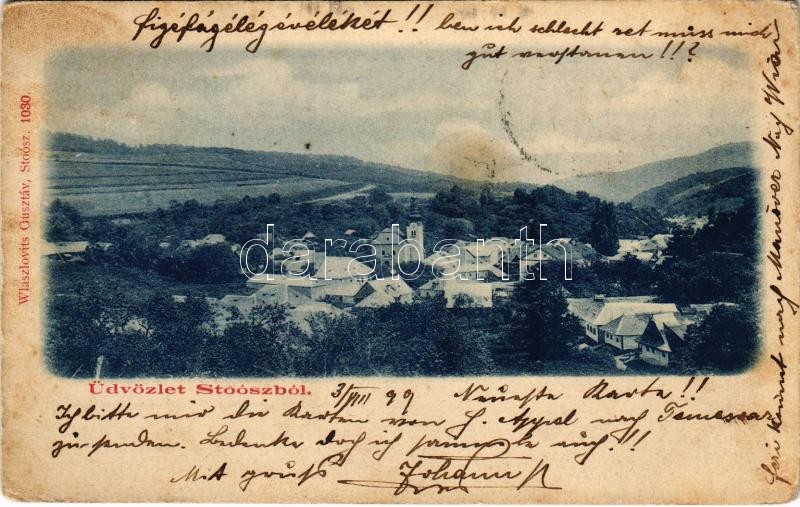 figéfágélégévélékét!! ben ich schlecht ret muss mich
gut verstanen!!?
Wlaszlovits Gusztáv, Stoósz. 1030.
darabanth
Üdvözlet Stoószból.
3/VIII 99 Neueste Karte!!
Ich bitte mir die Karten von H. Appel nach Temesvar
zu senden. Bedenke doch ich sammle auch!!!
Mit gruss Johann
kommt nach Manöver nach Wien